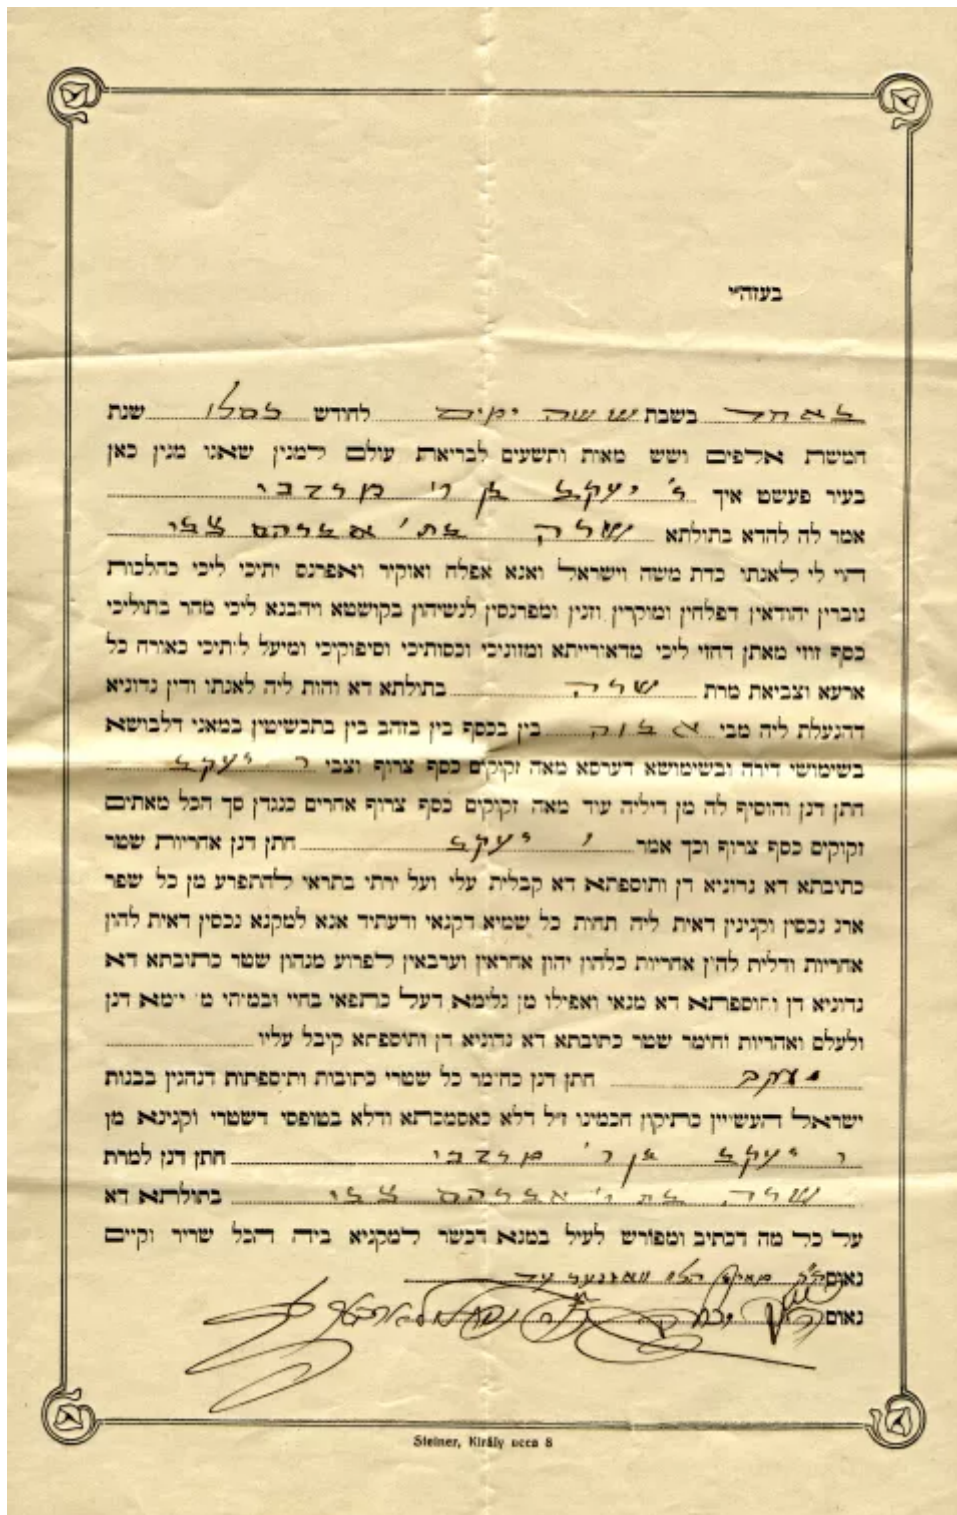 בעזהי״י
באחד בשבת ששה ימים לחודש כסלו שנת
חמשת אלפים ושש מאות ותשעים לבריאת עולם למנין שאנו מנין כאן
בעיר פעשט איך ר׳ יעקב בן ר׳ מרדכי
אמר לה להדא בתולתא שרה בת ר׳ אברהם צבי
הוי לי לאנתו כדת משה וישראל ואנא אפלח ואוקיר ואפרנס יתיכי ליכי כהלכות
גוברין יהודאין דפלחין ומוקרין וזנין ומפרנסין לנשיהון בקושטא ויהבנא ליכי מהר בתוליכי
כסף זוזי מאתן דחזי ליכי מדאורייתא ומזוניכי וכסותיכי וסיפוקיכי ומיעל לותיכי כאורח כל
ארעא וצביאת מרת שרה בתולתא דא והות ליה לאנתו ודין נדוניא
דהנעלת ליה מבי אבוה בין בכסף בין בזהב בין בתכשיטין במאני דלבושא
בשימושי דירה ובשימושא דערסא מאה זקוקים כסף צרוף וצבי ר יעקב
חתן דנן והוסיף לה מן דיליה עוד מאה זקוקים כסף צרוף אחרים כנגדן סך הכל מאתים
זקוקים כסף צרוף וכך אמר ר יעקב חתן דנן אחריות שטר
כתובתא דא נדוניא דן ותוספתא דא קבלית עלי ועל ירתי בתראי להתפרע מן כל שפר
ארג נכסין וקנינין דאית ליה תחות כל שמיא דקנאי ודעתיד אנא למקנא נכסין דאית להון
אחריות ודלית להון אחריות כלהון יהון אחראין וערבאין לפרוע מנהון שטר כתובתא דא
נדוניא דן ותוספתא דא מנאי ואפילו מן גלימא דעל כתפאי בחיי ובמותי מן יומא דנן
ולעלם ואחריות וחומר שטר כתובתא דא נדוניא דן ותוספתא קיבל עליו
יעקב חתן דנן כחומר כל שטרי כתובות ותוספתות דנהגין בבנות
ישראל העשויין כתיקון חכמינו ז״ל דלא כאסמכתא ודלא בטופסי דשטרי וקנינא מן
ר יעקב בן ר׳ מרדכי חתן דנן למרת
שרה בת ר׳ אברהם צבי בתולתא דא
על כל מה דכתיב ומפורש לעיל במנא דכשר למקניא ביה הכל שריר וקיים
נאום הלוי עד
נאום
Steiner, Király ucca 8